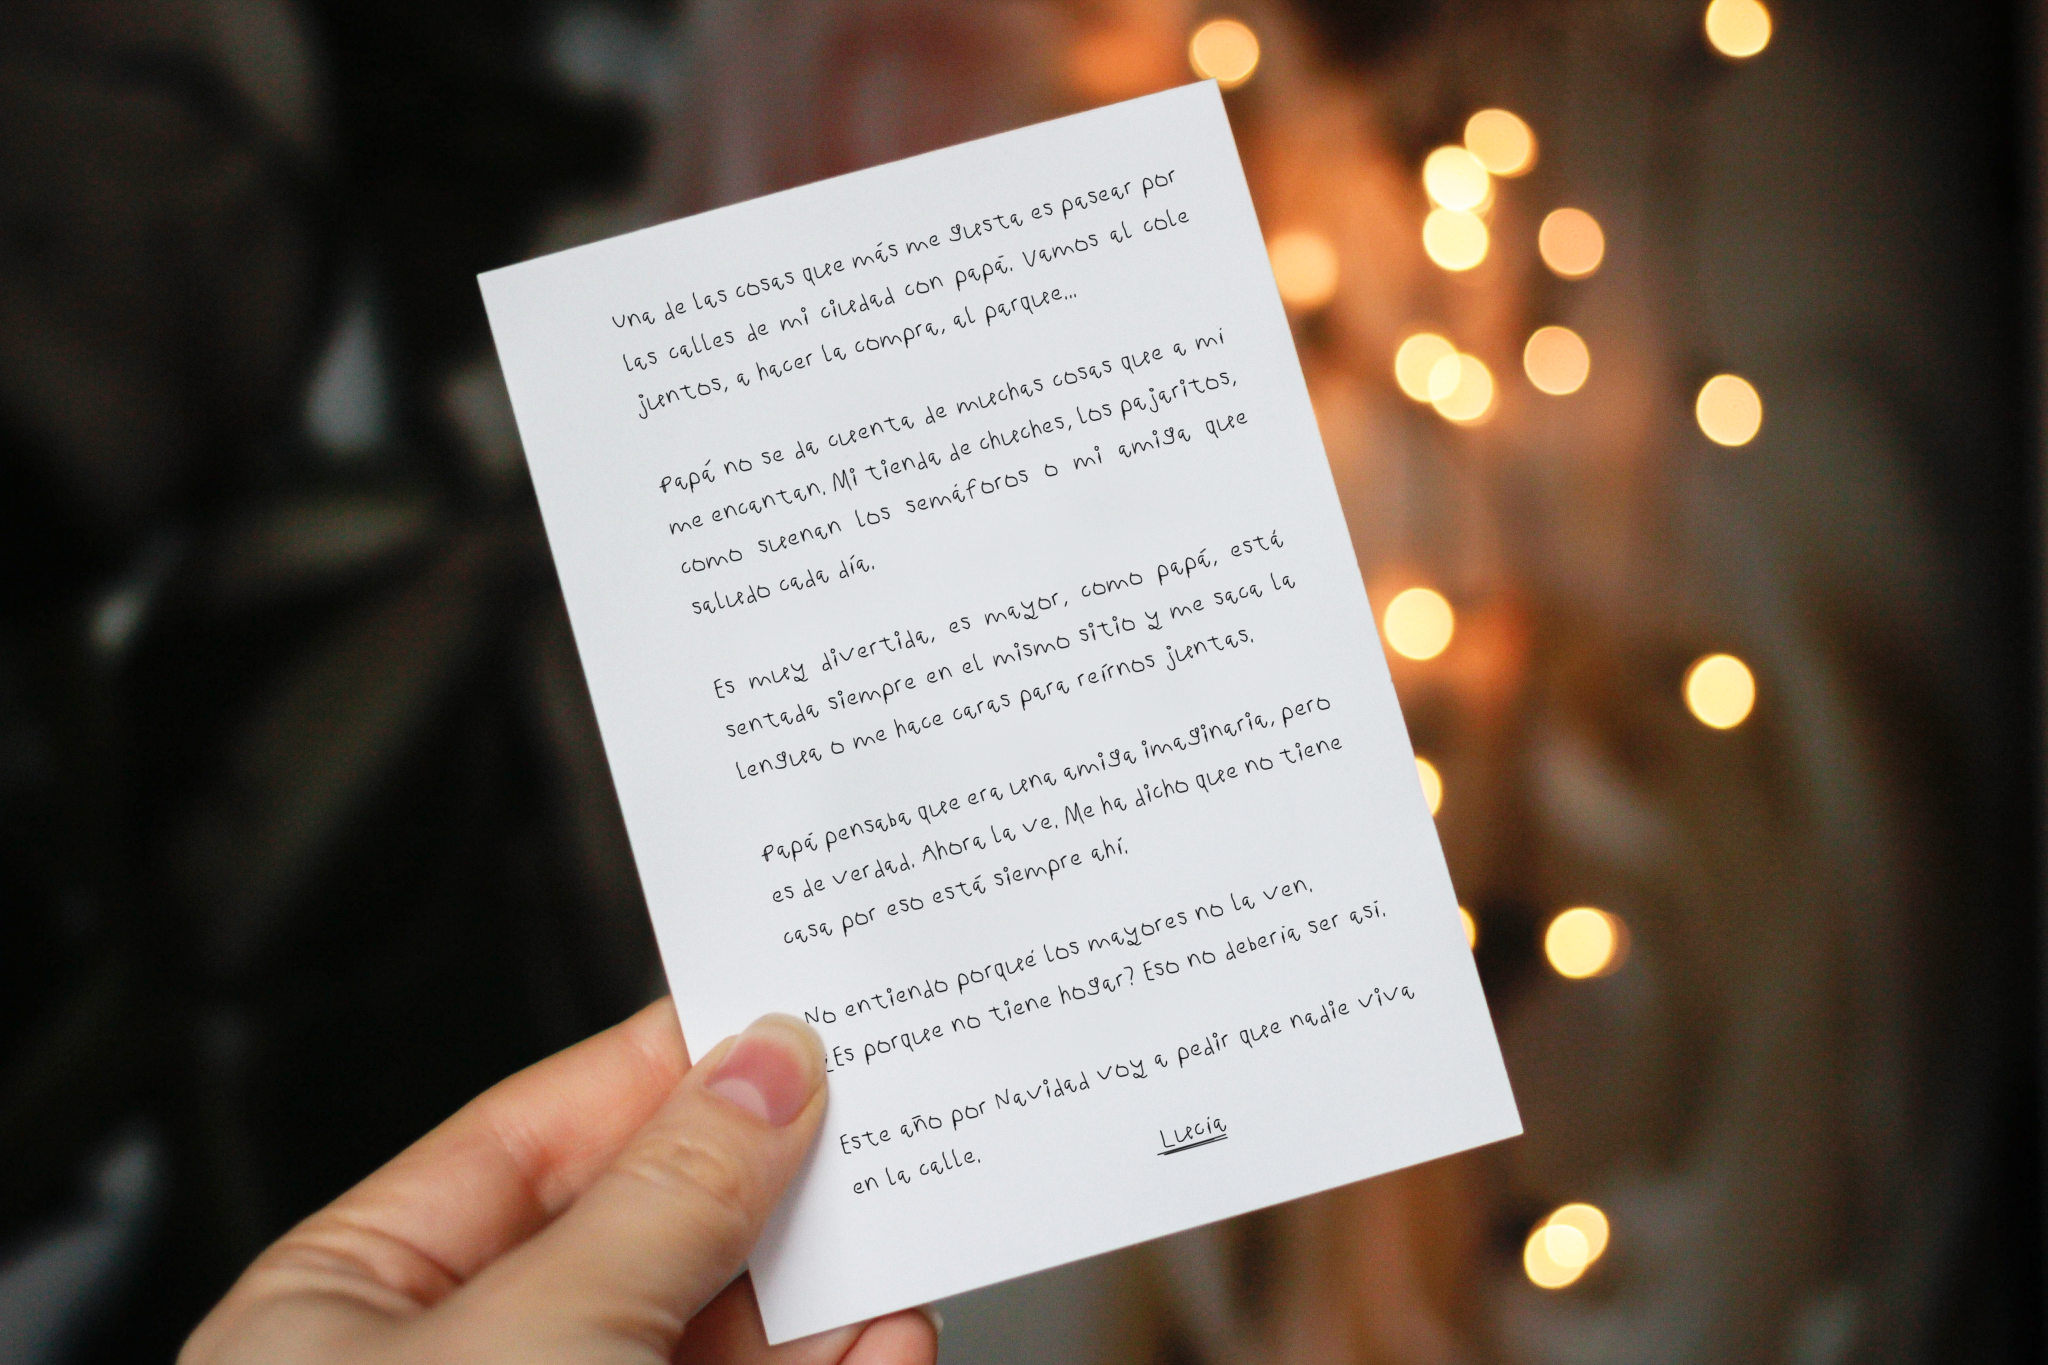 Una de las cosas que más me gusta es pasear por
las calles de mi ciudad con papá. Vamos al cole
juntos, a hacer la compra, al parque...
Papá no se da cuenta de muchas cosas que a mi
me encantan. Mi tienda de chuches, los pajaritos,
como suenan los semáforos o mi amiga que
saludo cada día.
Es muy divertida, es mayor, como papá, está
sentada siempre en el mismo sitio y me saca la
lengua o me hace caras para reírnos juntas.
Papá pensaba que era una amiga imaginaria, pero
es de verdad. Ahora la ve. Me ha dicho que no tiene
casa por eso está siempre ahí.
No entiendo porqué los mayores no la ven.
¿Es porque no tiene hogar? Eso no debería ser así.
Este año por Navidad voy a pedir que nadie viva
en la calle.
Lucía